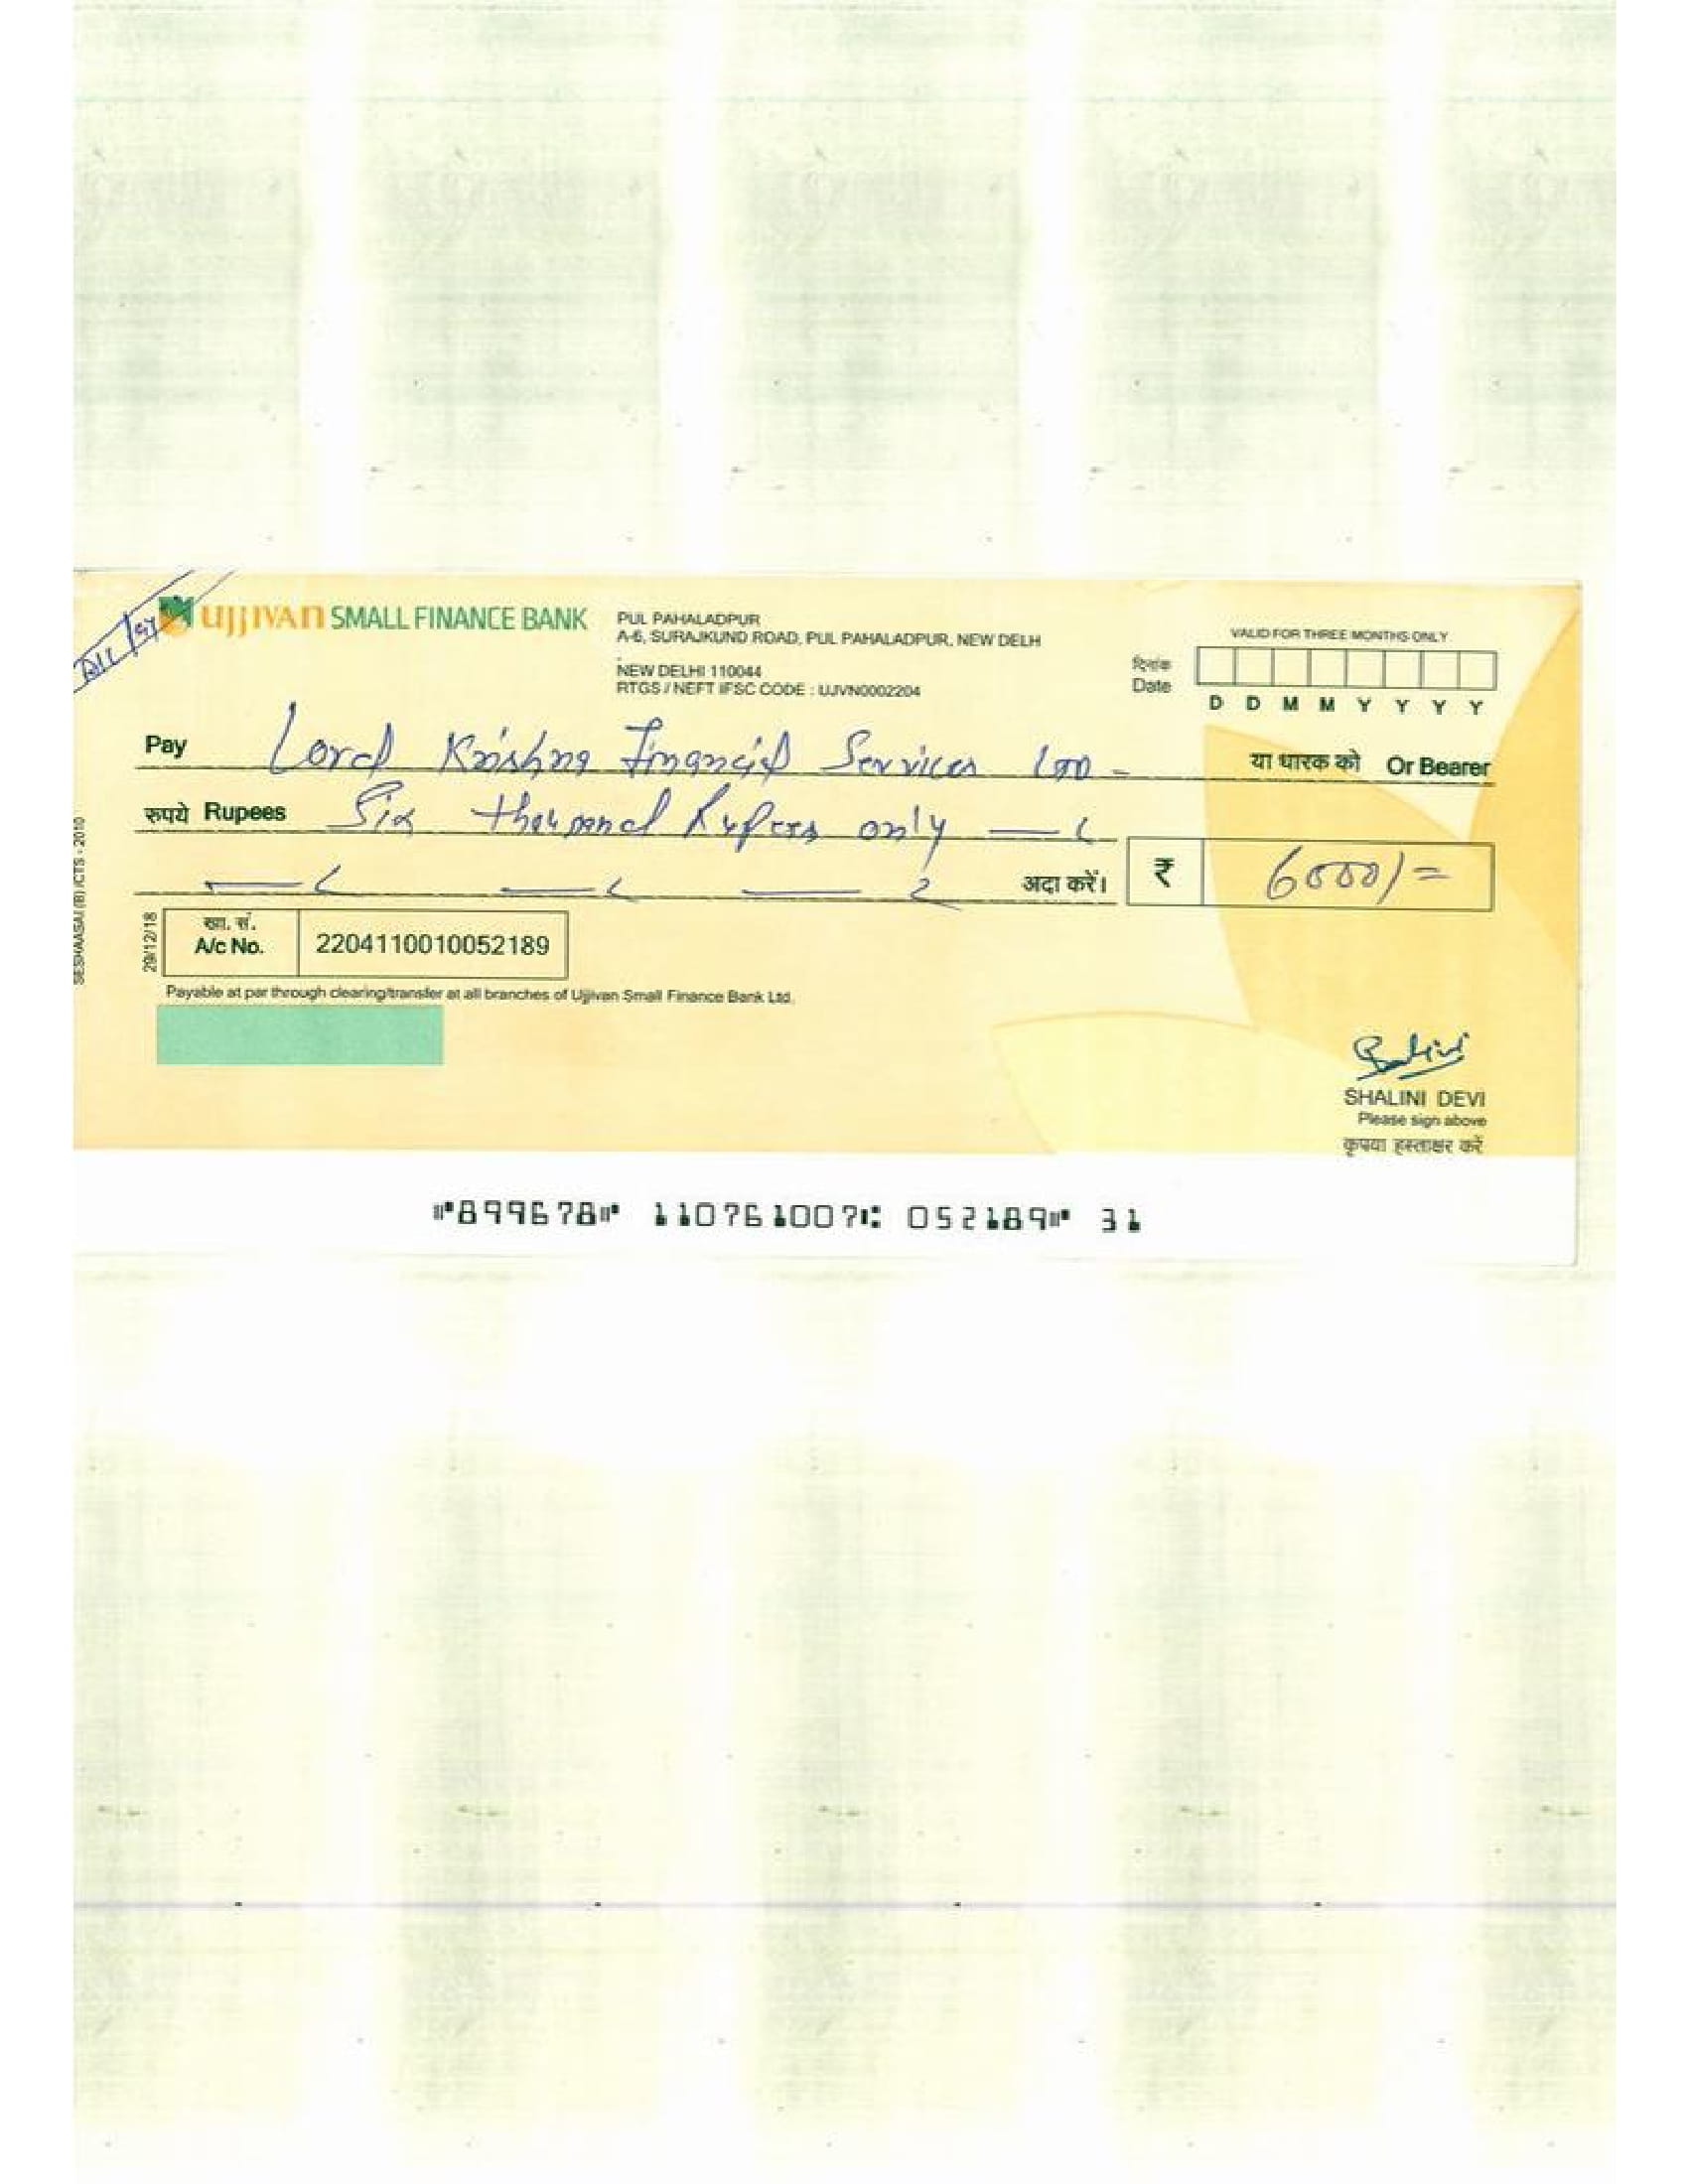 UJJIVAN SMALL FINANCE BANK
PUL PAHALADPUR
A-6, SURAJKUND ROAD, PUL PAHALADPUR, NEW DELH
.
NEW DELHI 110044
RTGS / NEFT IFSC CODE : UJVN0002204
VALID FOR THREE MONTHS ONLY
दिनांक
Date
D D M M Y Y Y Y
Pay Lord Krishna Financial Services LTD - या धारक को Or Bearer
रुपये Rupees Six thousand Rupees only
अदा करें। ₹ 6000/=
SESHAASAI (B) /CTS - 2010
29/12/18
खा. सं.
A/c No. 2204110010052189
Payable at par through clearing/transfer at all branches of Ujjivan Small Finance Bank Ltd.
Shalini
SHALINI DEVI
Please sign above
कृपया हस्ताक्षर करें
⑈899678⑈ 110761007⑆ 052189⑈ 31